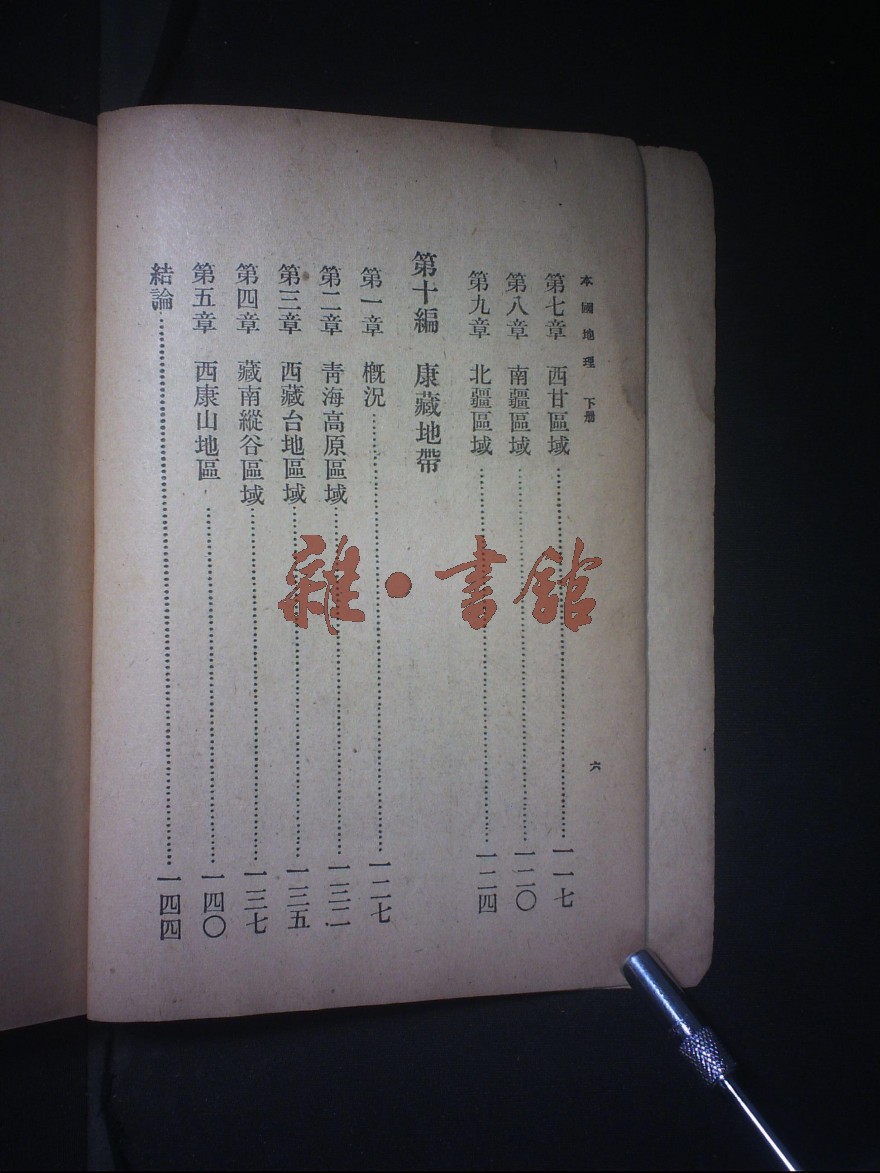 本國地理 下册
六
第七章 西甘區域……一一七
第八章 南疆區域……一二〇
第九章 北疆區域……一二四
第十編 康藏地帶
第一章 概况……一二七
第二章 靑海高原區域……一三二
第三章 西藏台地區域……一三五
第四章 藏南縱谷區域……一三七
第五章 西康山地區……一四〇
結論……一四四
雜·書館